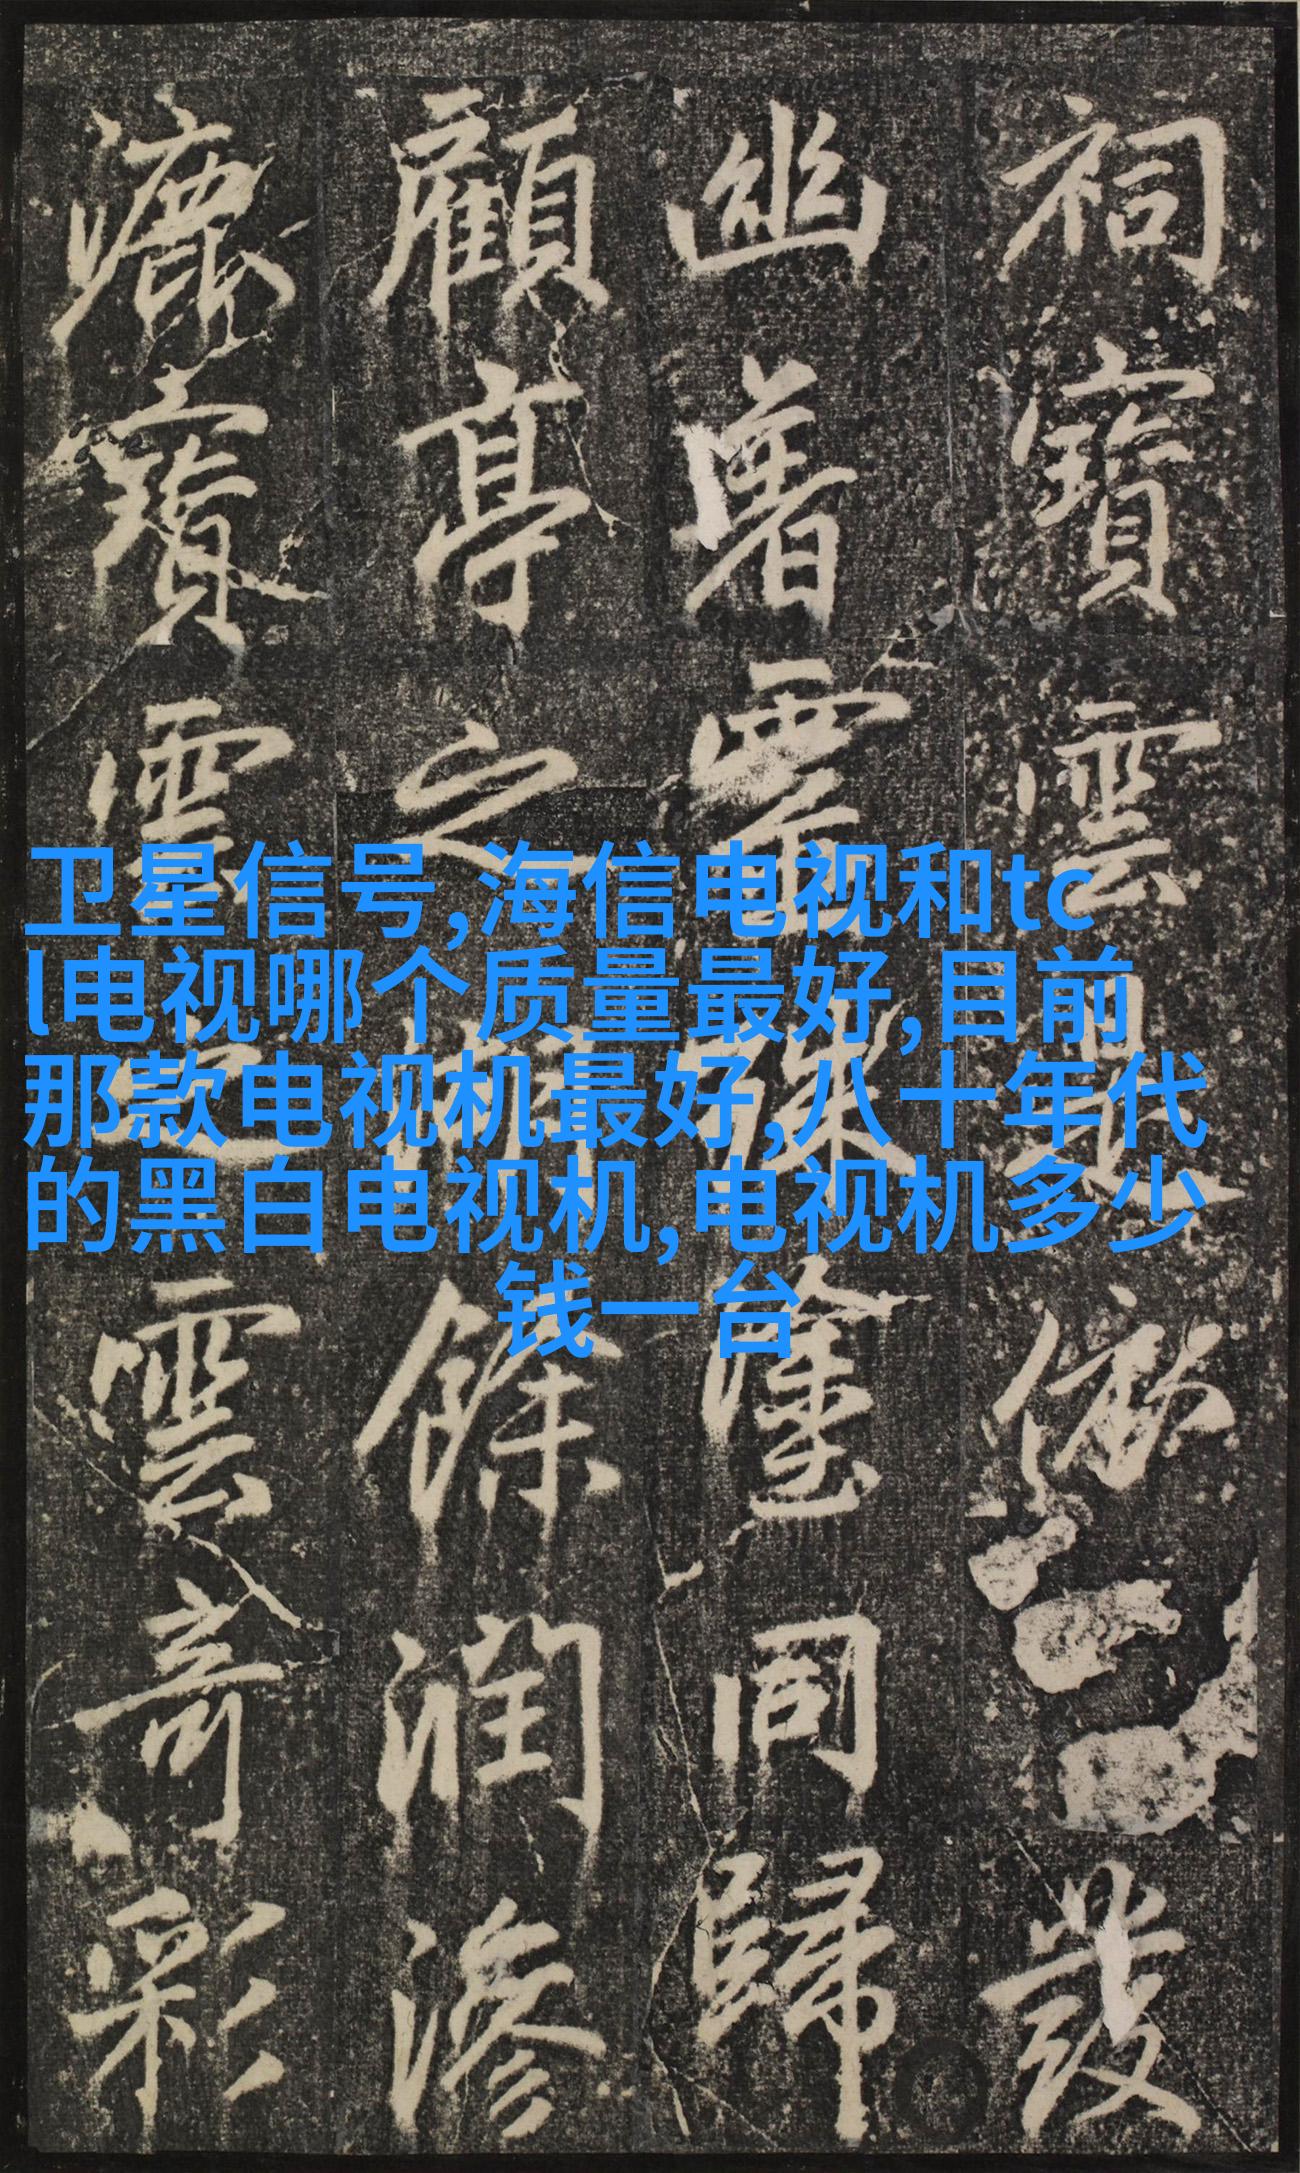 卫星信号,海信电视和tc
l电视哪个质量最好,目前
那款电视机最好,八十年代
的黑白电视机,电视机多少
钱一台
祠寶雲是俶發
幽同歸
顧亭之餘潤滲
漉寶雲之雲奇彩